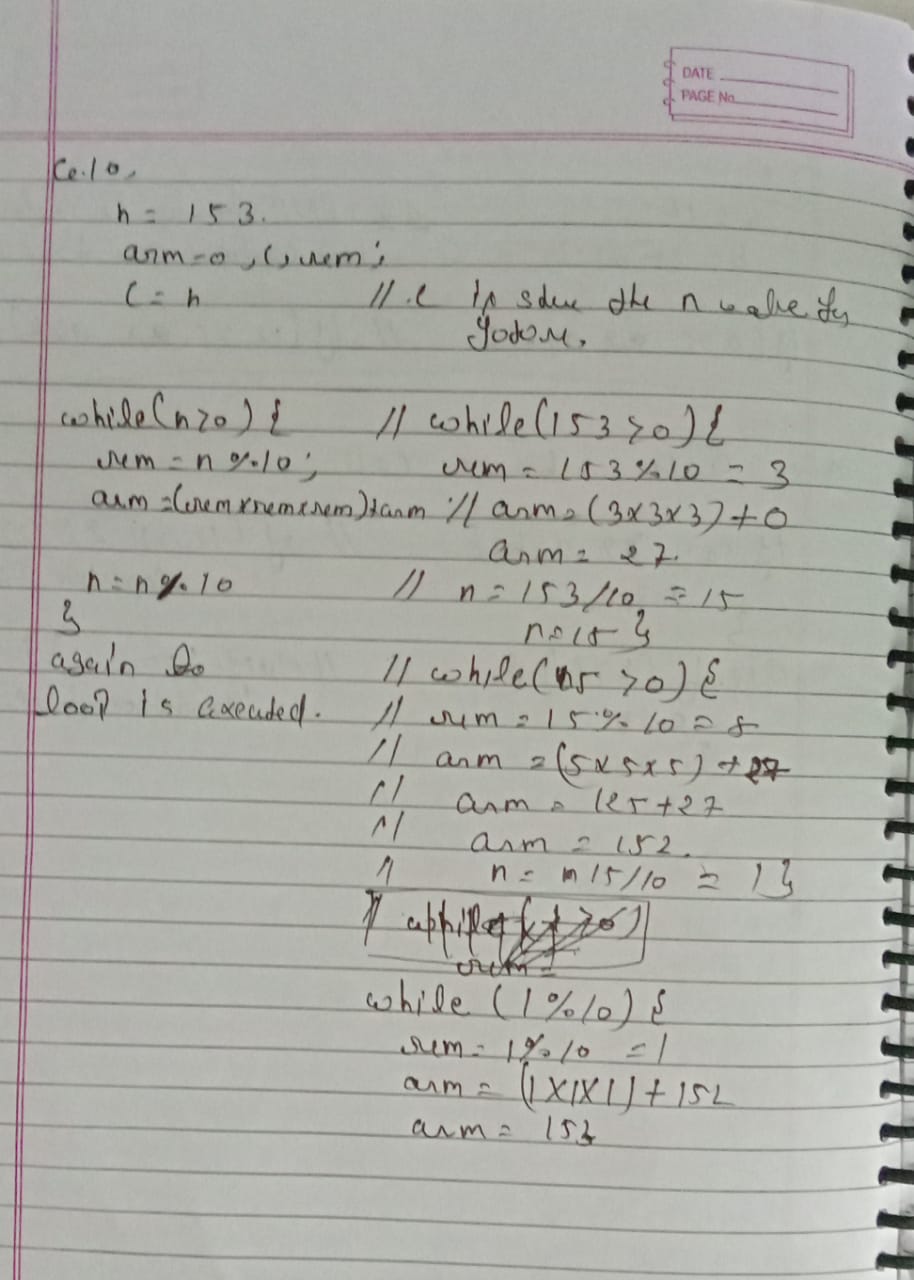 DATE
PAGE No.
n = 153.
arm=0, c, rem;
c = n // c is the n value
while(n>0) { // while(153>0){
rem = n%10; rem = 153%10 = 3
arm =(rem×rem×rem)+arm // arm = (3×3×3)+0
arm = 27.
n = n%10 // n = 153/10 = 15
} n=15 }
again // while(15>0){
loop is executed. // rem = 15%10 = 5
// arm = (5×5×5)+27
// arm = 125+27
// arm = 152.
// n = 15/10 = 1}
//
rem =
while (1%10) {
rem = 1%10 = 1
arm = (1X1X1)+152
arm = 153